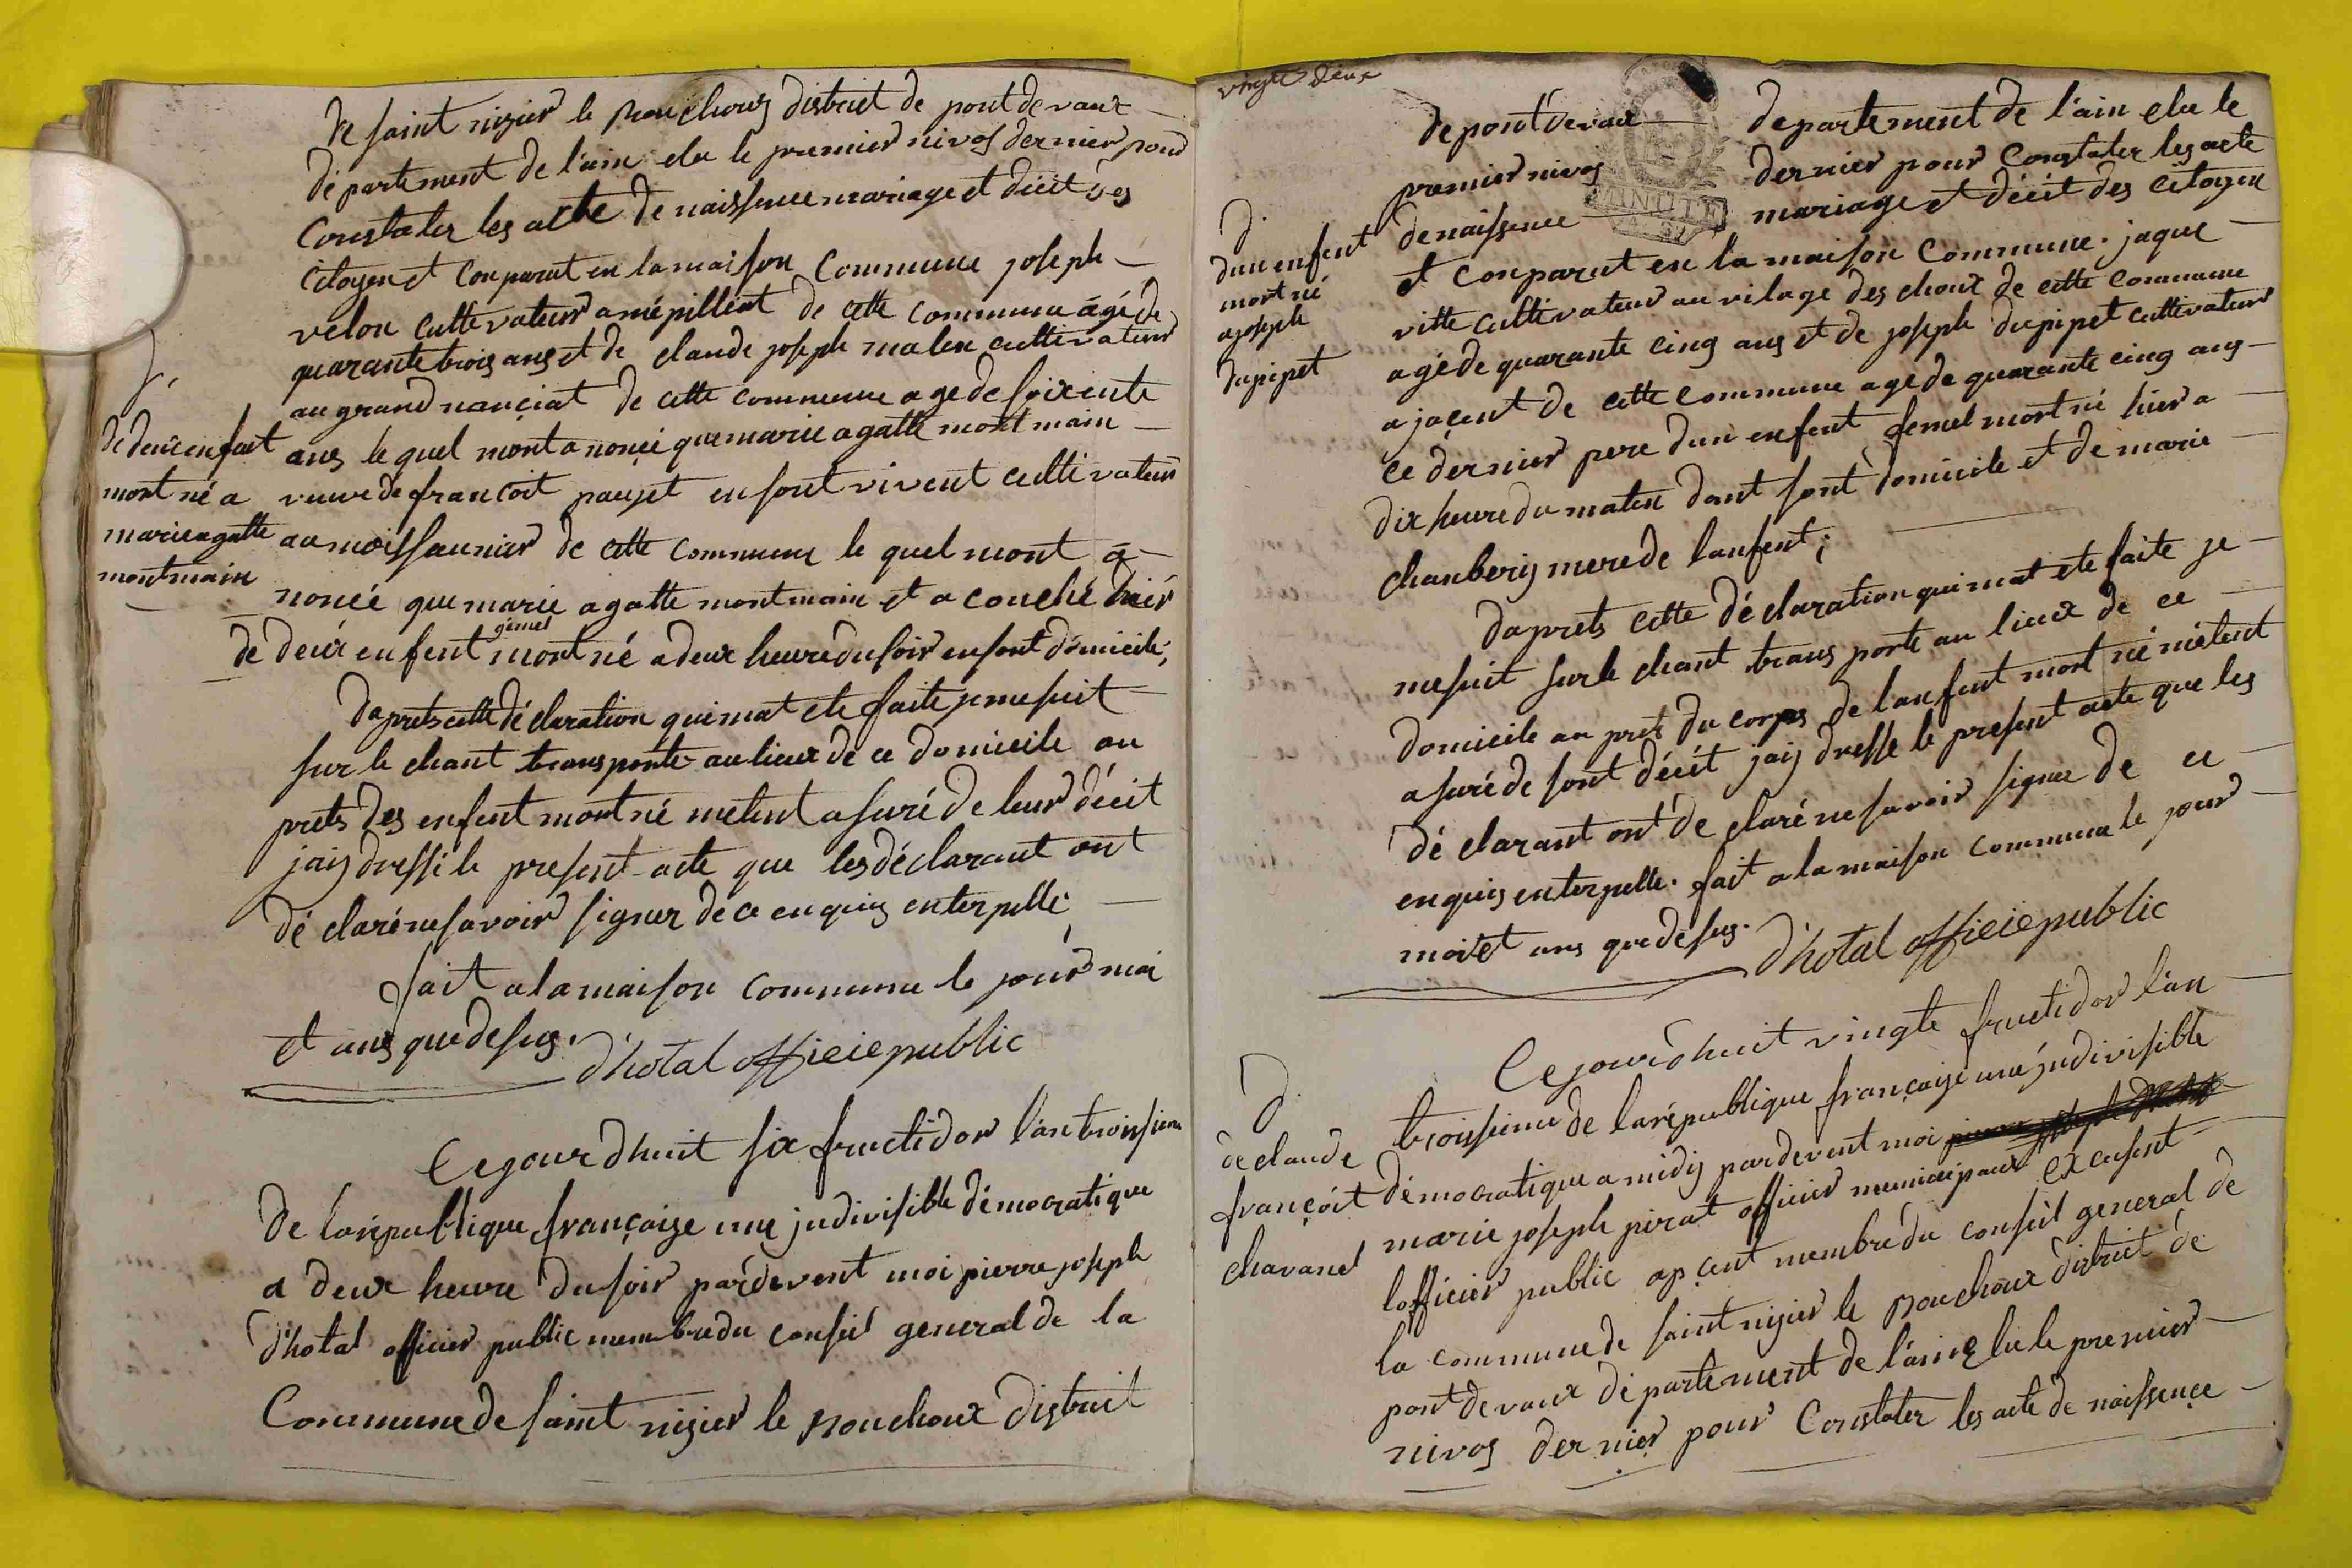 de saint nizier le Bouchoux district de pont de vaux
département de l'ain elu le premier nivos dernier pour
Constater les acte de naissence mariage et décit des
citoyen et conparut en la maison commune joseph
velon cultivateur a mépilliat de cette commune agé de
quarante trois ans et de claude joseph malin cultivateur
au grand nanciat de cette commune age de soixente
ans le quel mont a noncée que marie agatte montmain
veuve de francoit paujet en sont vivent cultivateur
au moissaunier de cette commune le quel mont a
noncée que marie agatte montmain et a couché hiér
gemel
de deux enfent mort né a deux heure du soir en sont domicile;
d.
de deux enfent
mort né a
marie agatte
montmain
daprets cette déclaration qui mat ete faite je me suit
sur le chant transporté au lieux de ce domicile au
prets des enfent mort né metent asuré de leur décit
jaiy dressé le present acte que les déclarant ont
dé claré ne savoir signer de ce enquis enterpellé;
fait a la maison commune le jour moi
et ans que desus.
d'hotal officié public
Ce jour dhuit six fructidor l'an troissieme
de la république françaize une jndivisible démocratique
a deux heure du soir pardevent moi pierre joseph
d'hotal officier public membre du conseil general de la
Commune de saint nizier le Bouchoux district
vingte deux
de pont devaux departement de l'ain elu le
premier nivos dernier pour Constater les acte
de naissence mariage et décit des citoyen
et conparut en la maison commune. jaque
vitte cultivateur au vilage des choux de cette commune
agé de quarante cinq ans et de joseph dupipet cultivateur
a jacent de cette commune age de quarante cinq ans
ce dernier pere dun enfent femel mort né hier a
dix heure du matin dant sont domicile et de marie
chanbery mere de lanfent;
d.
dun enfent
mort né
a joseph
dupipet
daprets cette déclaration qui mat ete faite je
me suit sur le chant trans porté au lieux de ce
domicile au prets du corps de lanfent mort né mètent
asuré de sont décit jaiy dressé le present acte que les
dé clarant ont dé claré ne savoir signer de ce
enquis enterpellé. fait a la maison commune le jour
moi et ans que desus.
d'hotal officié public
Ce jour dhuit vingte fructidor l'an
troissieme de la république françaize une jndivisible
démocratique a midiy pardevent moi
marie joseph pirat officier municipaux excusent
lofficier public apcent membre du conseil general de
la commune de saint nizier le Bouchoux district de
pont de vaux département de l'ain elu le premier
nivos dernier pour Constater les acte de naissence
d.
de claude
françoit
chavanel